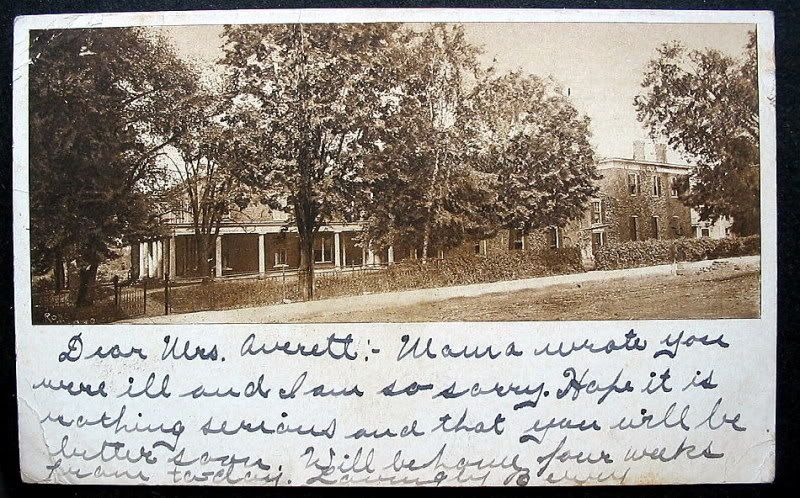 Dear Mrs. Averett:- Mama wrote you
were ill and I am so sorry. Hope it is
nothing serious and that you will be
better soon. Will be home four weeks
from to-day. Lovingly